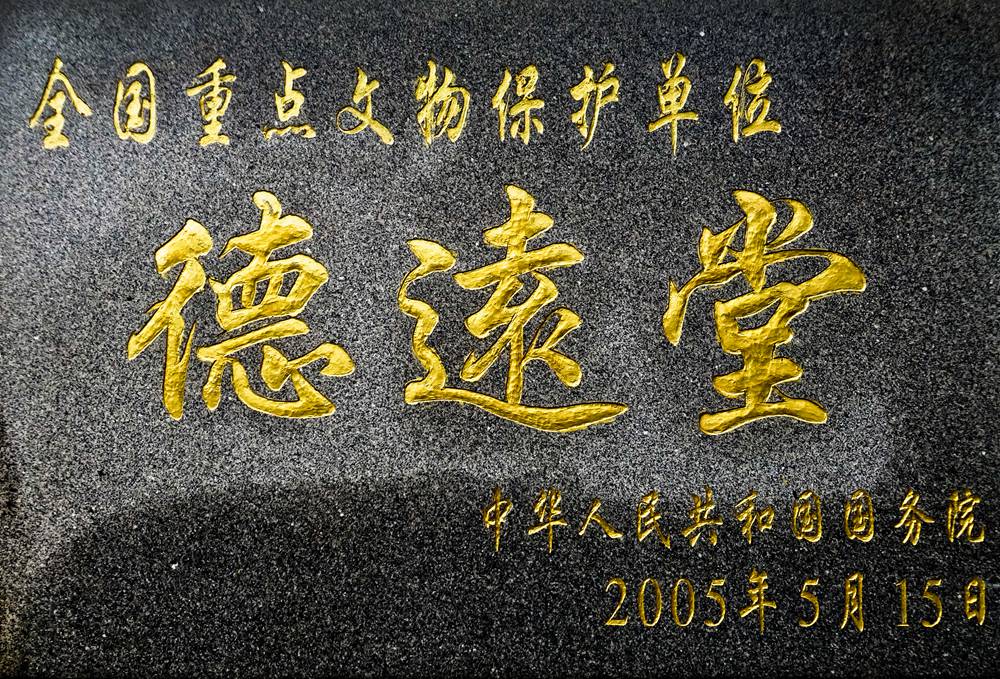 全国重点文物保护单位
德遠堂
中华人民共和国国务院
2005年5月15日